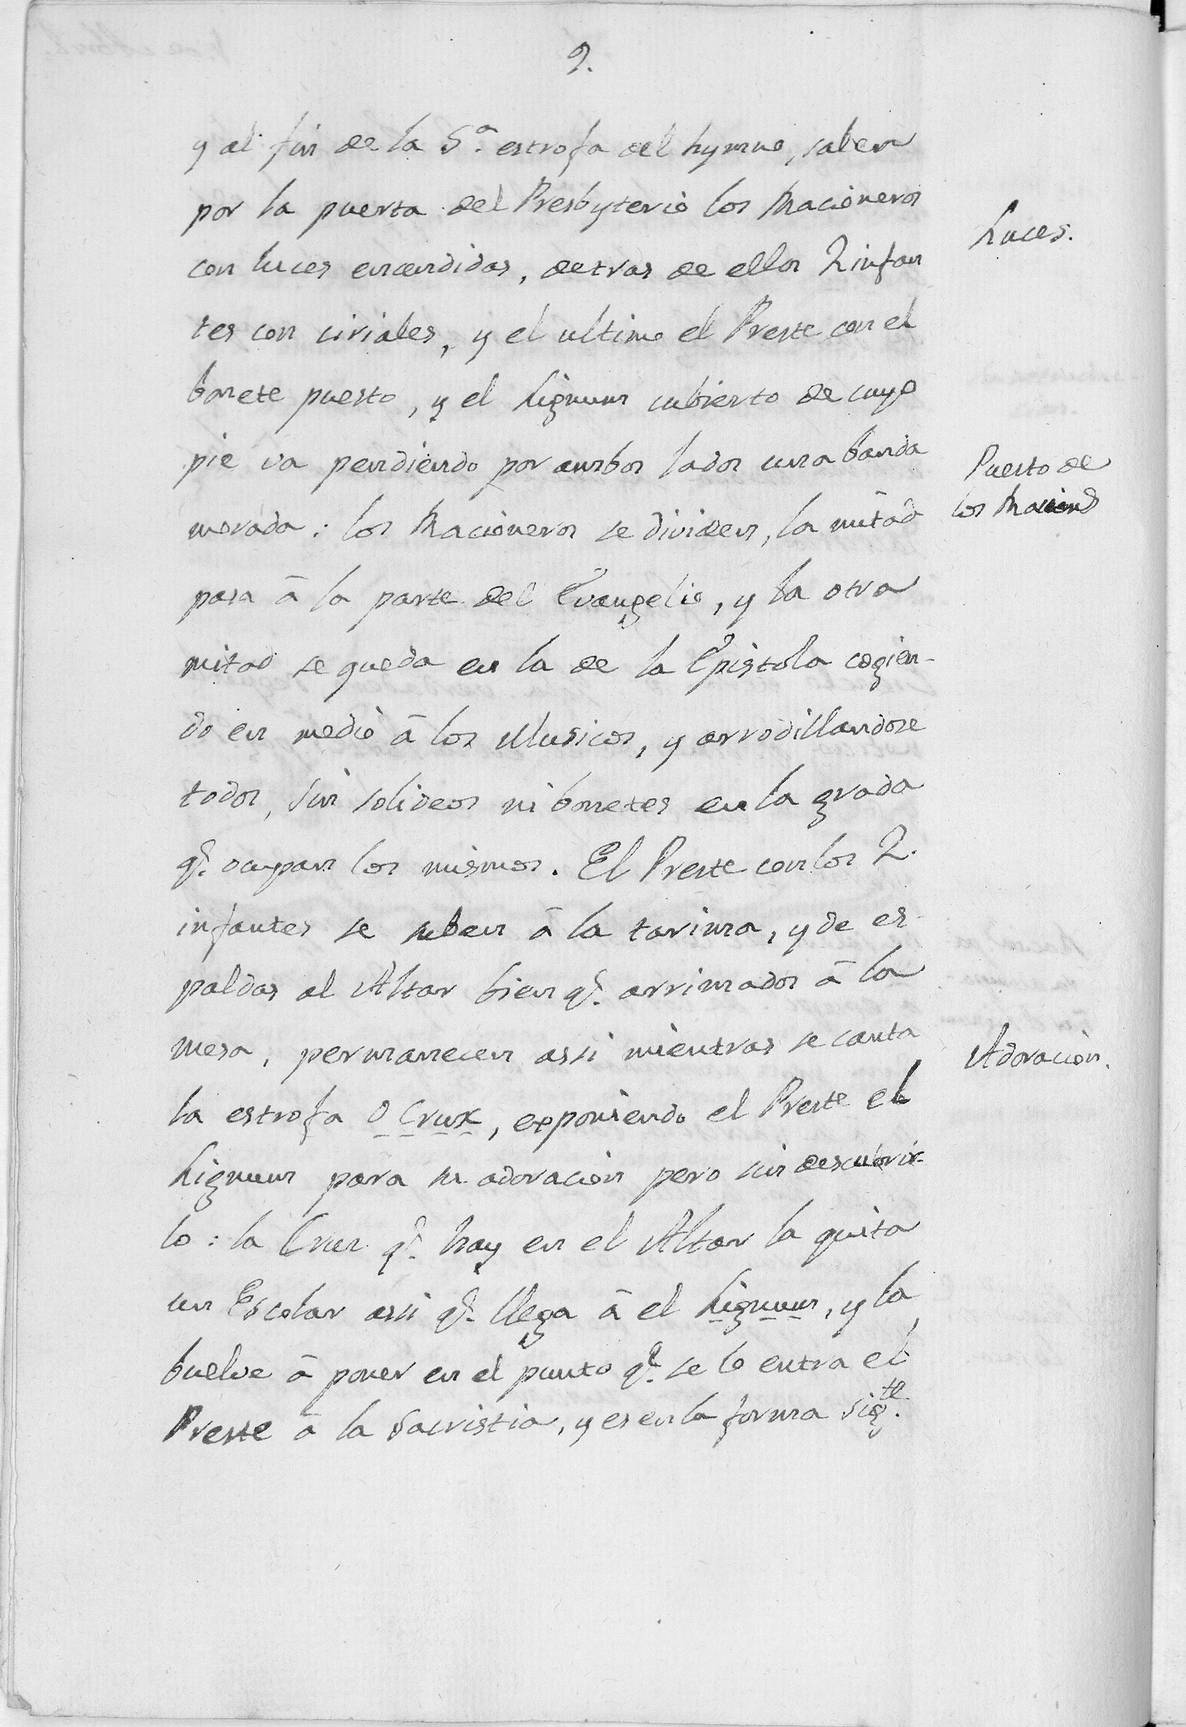 2.
y al fin de la 5.ª estrofa del hymno, salen
por la puerta del Presbyterio los Racioneros
Luces.
con luces encendidas, detras de ellos 2 infan
tes con ciriales, y el ultimo el Preste con el
bonete puesto, y el Lignum cubierto de cuyo
pie va pendiendo por ambos lados una banda
Puesto de
los Racion.s
morada: los Racioneros se dividen, la mitad
pasa â la parte del Evangelio, y la otra
mitad se queda en la de la Epistola cogien-
do en medio â los Musicos, y arrodillandose
todos, sin solideos ni bonetes en la grada
q.e ocupan los mismos. El Preste con los 2.
infantes se suben â la tarima, y de es-
paldas al Altar bien q.e arrimados â la
mesa, permanecen assi mientras se canta
Adoracion.
la estrofa O Crux, exponiendo el Preste el
Lignum para su adoracion pero sin descubrir-
lo: la Cruz q.e hay en el Altar la quita
un Escolar assi q.e llega â el Lignum, y la
buelve â poner en el punto q.e se lo entra el
Preste â la Sacristia, y es en la forma sig.te